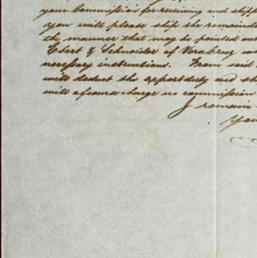 your Commission for receiving and shipp
you will please ship the remainde
the manner that may be pointed out
Ebert & Schneider of
necessary instructions. From said
will deduct the export duty and th
will of course charge no commission
I remain
You